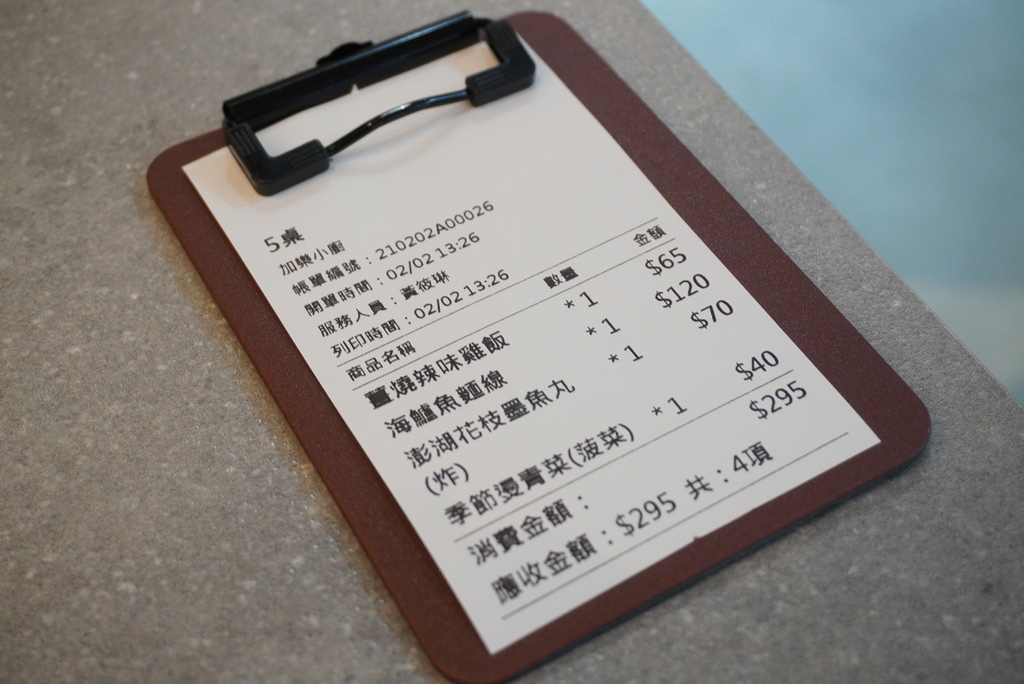 5桌
加樂小廚
帳單編號：210202A00026
開單時間：02/02 13:26
服務人員：黃筱琳
列印時間：02/02 13:26
商品名稱 數量 金額
薑燒辣味雞飯 *1 $65
海鱸魚麵線 *1 $120
澎湖花枝墨魚丸 *1 $70
(炸)
季節燙青菜(菠菜) *1 $40
消費金額： $295
應收金額：$295 共：4項